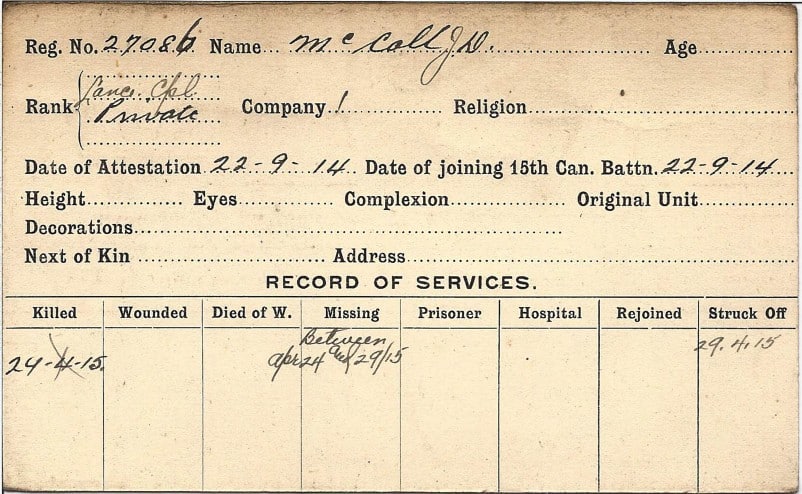 Reg. No. 27086 Name McColl J.D. Age
Lance Cpl
Rank Private Company 1 Religion
Date of Attestation 22-9-14 Date of joining 15th Can. Battn. 22-9-14
Height Eyes Complexion Original Unit
Decorations
Next of Kin Address
RECORD OF SERVICES.
Killed Wounded Died of W. Missing Prisoner Hospital Rejoined Struck Off
Between 29.4.15
24-4-15. Apr 24 and 29/15